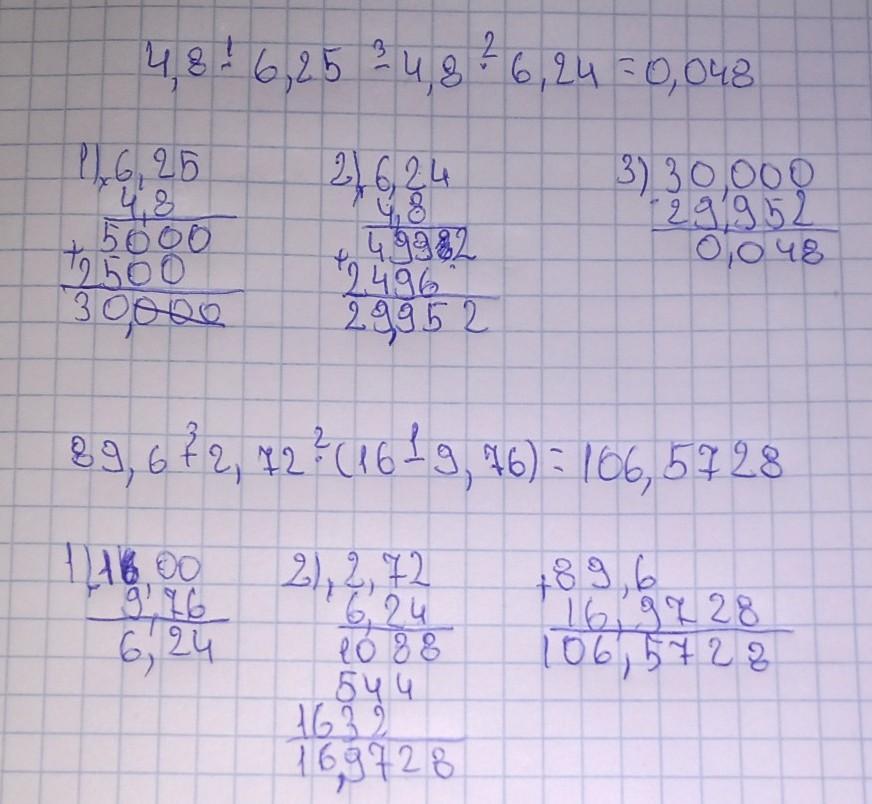 4,8 · 6,25 - 4,8 · 6,24 = 0,048
1 3 2
1) 6,25
× 4,8
5000
+ 2500
30,000
2) 6,24
× 4,8
49932
+ 2496
29,952
3) 30,000
- 29,952
0,048
89,6 + 2,72 · (16 - 9,76) = 106,5728
3 2 1
1) 16,00
- 9,76
6,24
2) 2,72
× 6,24
1088
544
1632
16,9728
+ 89,6
16,9728
106,5728